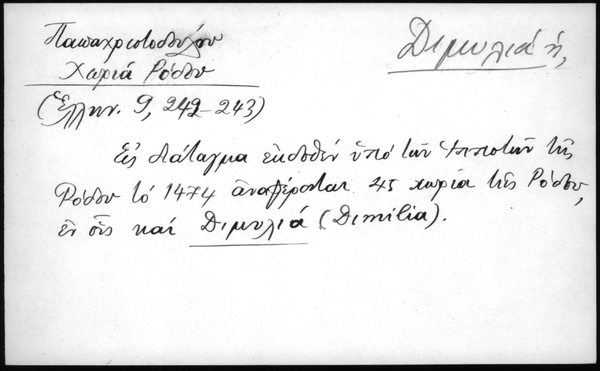 Παπαχριστοδούλου
Χωριά Ρόδου
Διμυλιά ἡ,
(Ἑλλην. 9, 242-243)
Εἰς διάταγμα ἐκδοθέν ὑπό τῶν Ἱπποτῶν τῆς
Ρόδου τό 1474 ἀναφέρονται 45 χωρία τῆς Ρόδου,
ἐν οἷς καί Διμυλιά (Dimilia).